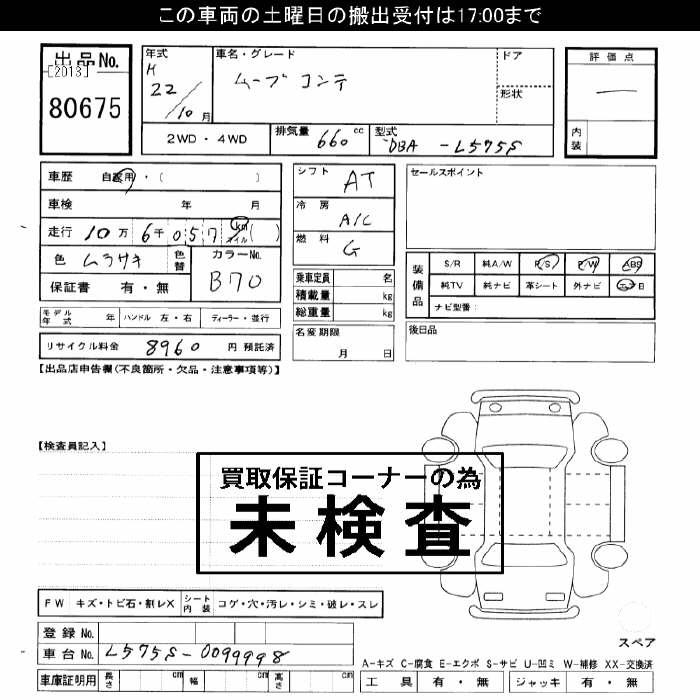 この車両の土曜日の搬出受付は17:00まで
出品No.
[2013]
80675
年式
H
22/10月
車名・グレード
ムーブ コンテ
ドア
形状
評価点
―
内装
2WD・4WD
排気量 660 cc
型式 DBA - L575S
車歴 自家用・( )
車検 年 月
走行 10万 6千 0 5 7 km マイル ( )
色 ムラサキ
色替
カラーNo.
B70
保証書 有・無
シフト AT
冷房 A/C
燃料 G
乗車定員 名
積載量 kg
総重量 kg
名変期限
月 日
セールスポイント
装備品
S/R 純A/W P/S P/W ABS
純TV 純ナビ 革シート 外ナビ
ナビ型番:
後日品
モデル年式 年 ハンドル 左・右 ディーラー・並行
リサイクル料金 8960 円 預託済
【出品店申告欄(不良箇所・欠品・注意事項等)】
【検査員記入】
買取保証コーナーの為
未検査
FW キズ・トビ石・割レX
シート内装 コゲ・穴・汚レ・シミ・破レ・スレ
登録No.
車台No. L575S-0099998
車庫証明用 長さ cm 幅 cm 高さ cm
スペア
A-キズ C-腐食 E-エクボ S-サビ U-凹ミ W-補修 XX-交換済
工具 有・無 ジャッキ 有・無